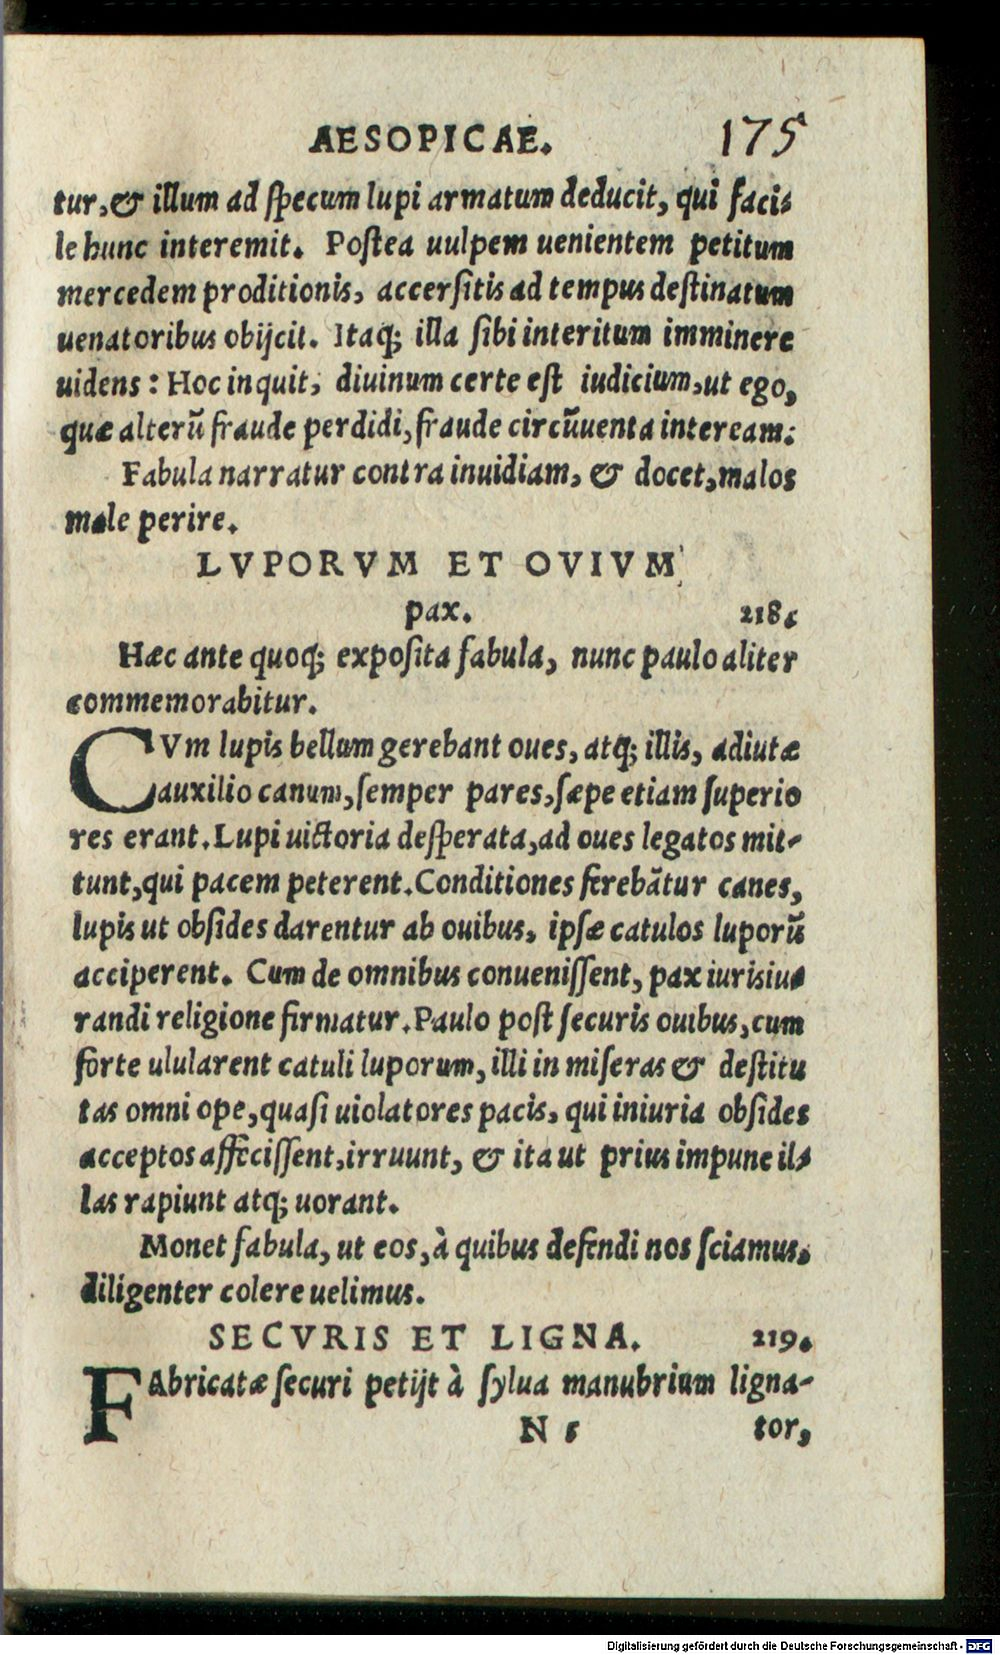 AESOPICAE. 175
tur, & illum ad ſpecum lupi armatum deducit, qui faci-
le hunc interemit. Poſtea uulpem uenientem petitum
mercedem proditionis, accerſitis ad tempus deſtinatum
uenatoribus obijcit. Itaq; illa ſibi interitum imminere
uidens: Hoc inquit, diuinum certe eſt iudicium, ut ego,
quæ alterũ fraude perdidi, fraude circũuenta inteream.
Fabula narratur contra inuidiam, & docet, malos
male perire.
LVPORVM ET OVIVM
pax. 218.
Hæc ante quoq; expoſita fabula, nunc paulo aliter
commemorabitur.
CVm lupis bellum gerebant oues, atq; illis, adiutæ
auxilio canum, ſemper pares, ſæpe etiam ſuperio
res erant. Lupi uictoria deſperata, ad oues legatos mit-
tunt, qui pacem peterent. Conditiones ferebãtur canes,
lupis ut obſides darentur ab ouibus, ipſæ catulos luporũ
acciperent. Cum de omnibus conueniſſent, pax iurisiu-
randi religione firmatur. Paulo poſt ſecuris ouibus, cum
forte ulularent catuli luporum, illi in miſeras & deſtitu
tas omni ope, quaſi uiolatores pacis, qui iniuria obſides
acceptos affeciſſent, irruunt, & ita ut prius impune il-
las rapiunt atq; uorant.
Monet fabula, ut eos, à quibus defendi nos ſciamus,
diligenter colere uelimus.
SECVRIS ET LIGNA. 219.
FAbricatæ ſecuri petijt à ſylua manubrium ligna-
N 5 tor,
Digitalisierung gefördert durch die Deutsche Forschungsgemeinschaft - DFG